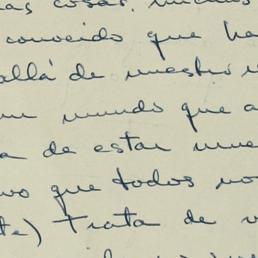 cosas.
conocido que ha
allá de nuestro
mundo que a
de estar
que todos
te) trata de